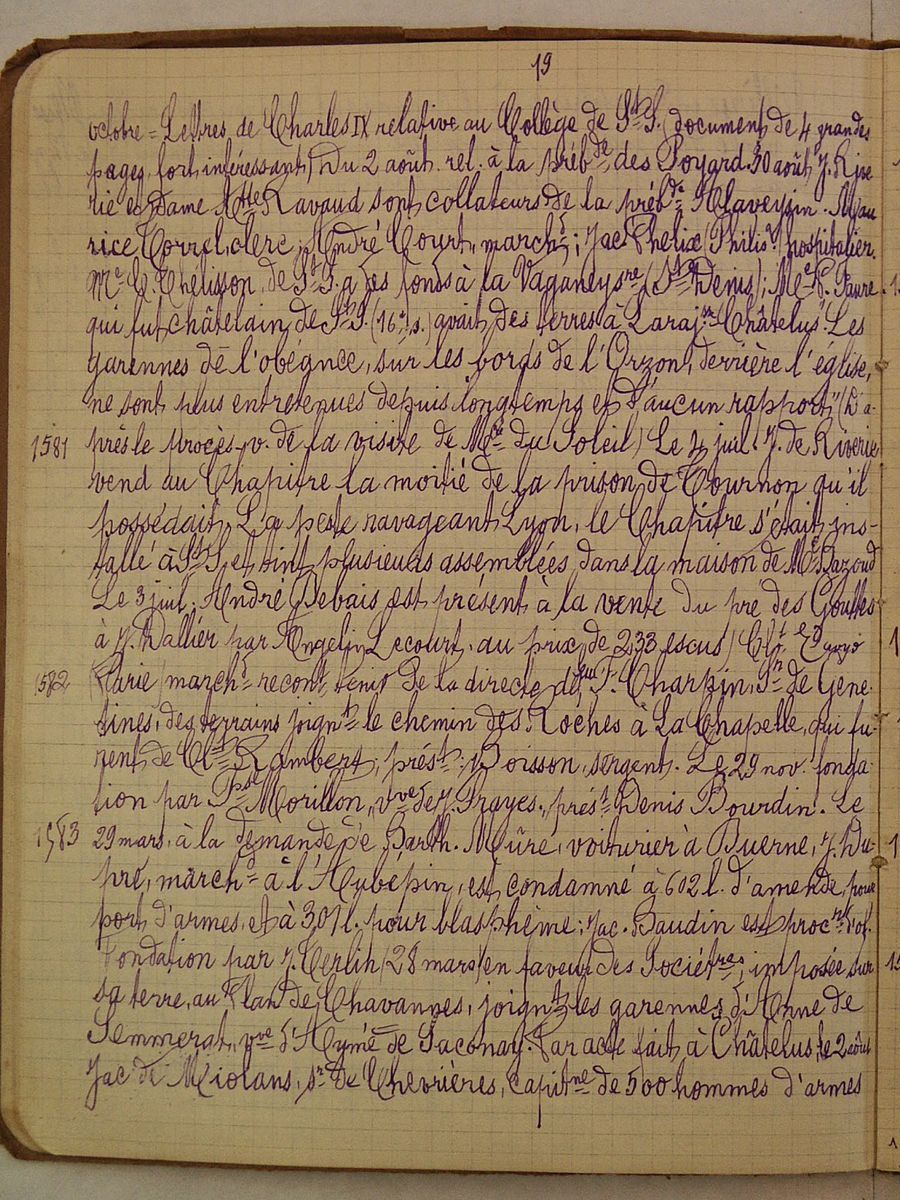 19
octobre = Lettres de Charles IX relative au Collège de St S. (document de 4 grandes
pages fort intéressant) Du 2 août rel. à la préb.de des Poyard. 30 août J. Rive
rie et Dame Ravaud sont collateurs de la préb.de Mau
rice Correl, clerc; André Court, march.d; Jac. Thelix (Philis?) hospitalier.
Me C. Chelisson de St S. a des fonds à la (St Denis); Me P. Faure
qui fut châtelain de St S. (16e s.) avait des terres à Laraj.sse Châtelus. "Les
garennes de l'obégnce, sur les bords de l'Orzon, derrière l'église,
ne sont plus entretenues depuis longtemps et d'aucun rapport" (D'a-
1581 près le procès-v. de la visite de du Soleil) Le 4 juil. J. de Riverie
vend au Chapitre la moitié de la prison de Tournon qu'il
possédait. La peste ravageant Lyon, le Chapitre s'était ins-
tallé à St S. et tint plusieurs assemblées dans la maison de Mr Bazoud
Le 3 juil. André Debais est présent à la vente du pré des Gouttes
à J. Dallier par Angelin Lecourt, au prix de 233 escus) Clt
1582 Parie) march.d recont tenir de la directe de feu F. Charpin, Sr de Gene-
tines, des terrains joignts le chemin des Roches à La Chapelle, qui fu-
rent de Cl. Rambert, prést: Poisson, sergent. Le 29 nov. fonda-
tion par Morillon, vve de J. Frayes, prést Denis Bourdin. Le
1583 29 mars, à la demande de Barth. Mûre, voiturier à Duerne, J. Du-
pré, march.d à l'Aubépin, est condamné à 602 l. d'amende pour
port d'armes, et à 301 l. pour blasphème; Jac. Baudin est procr d'of.
Fondation par J. Cerlin (28 mars) en faveur des Sociétres, imposée sur
sa terre, au Plan de Chavannes, joignt les garennes d'Anne de
Semmerat, vve d'Aymé de Saconay. Par acte fait à Châtelus, le 2 août
Jac. de Miolans, sr de Chevrières, capitne de 500 hommes d'armes